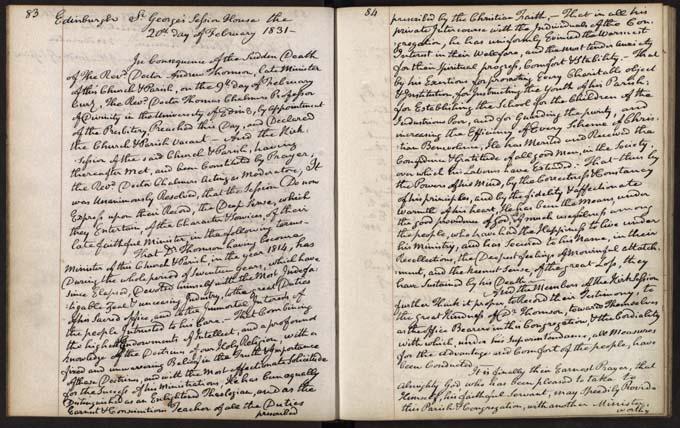 83
Edinburgh St George's Session House the
20th day of February 1831 –
In Consequence of the Sudden Death
of the Revd. Doctor Andrew Thomson, late Minister
of this Church & Parish, on the 9th day of February
Curt, The Revd. Doctor Thomas Chalmers Professor
of Divinity in the University of Edinr, by appointment
of the Presbytery, Preached this Day, and Declared
the Church & Parish Vacant – And the Kirk
Session of the said Church & Parish, having
thereafter Met, and been Constituted by Prayer,
the Revd. Doctor Chalmers Acting as Moderator, It
was Unanimously Resolved, that the Session Do now
Express upon their Record, the Deep Sense, which
they Entertain, of the Character & Services, of their
late faithful Minister in the following terms –
That Dr. Thomson having become
Minister of this Church & Parish, in the year 1814, has
During the whole period of Seventeen Years, which have
since Elapsed, Devoted himself with the Most Indefa-
tigable Zeal & unceasing Industry, to the great Duties
of his Sacred office, and to the Immortal Interests of
the people Intrusted to his Care – That Combining
the highest Endowments of Intellect, and a profound
knowledge of the Doctrines of our Holy Religion, with a
fixed and unwavering Belief in the Truth & Importance
of these Doctrines, and with the Most affectionate Solicitude
for the Success of his Ministrations, He has been equally
Distinguished as an Enlightened Theologian, and as the
Earnest & Convincing Teacher of all the Duties
prescribed
84
prescribed by the Christian Faith – That in all his
private Intercourse with the Individuals of the Con-
gregation, he has uniformly Evinced the Warmest
Interest in their Welfare, and the most tender anxiety
for their Spiritual progress, Comfort & Stability – That
by his Exertions for promoting Every Charitable object
& Institution, for Instructing the Youth of his Parish
for Establishing the School for the Children of the
Industrious Poor, and for Guarding the purity, and
increasing the Efficiency of Every Scheme of Chris-
tian Benevolence, He has Merited and Received the
Confidence & Gratitude of all good Men, in the Society,
over which his Labours have Extended – That thus by
the Powers of his Mind, by the Correctness & Constancy
of his principles, and by the fidelity & affectionate
warmth of his heart, He has been the Means, under
the good providence of God, of much usefulness among
the people, who have had the Happiness to live under
his Ministry, and has Secured to his Name, in their
Recollections, the Deepest feelings of Mournful attach-
ment, and the keenest Sense, of the great Loss, they
have Sustained by his Death –
And the Members of the Kirk Session
further Think it proper to Record their Testimony, to
the Great Kindness of Dr. Thomson, towards Themselves
as the office Bearers in the Congregation, & the Cordiality
with which, under his Superintendance, all Measures
for the Advantage and Comfort of the people, have
been Conducted –
It is finally their Earnest Prayer, that
Almighty God who has been pleased to take to
Himself, his faithful Servant, may Speedily Provide
this Parish & Congregation, with another Minister,
worthy